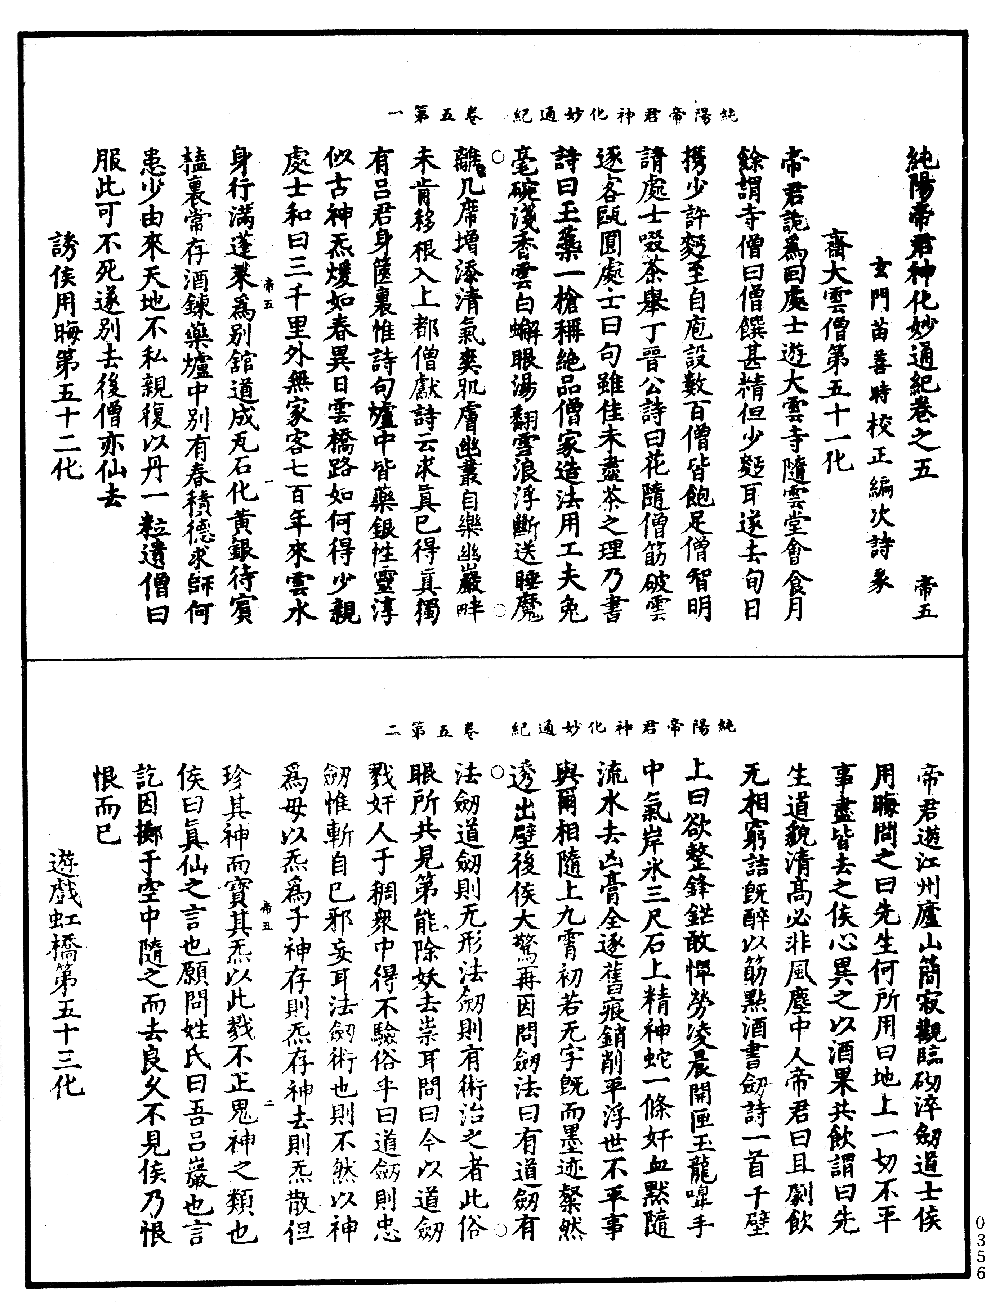 純陽帝君神化妙通紀 卷五第一
純陽帝君神化妙通紀卷之五 帝五
玄門苗善時校正編次詩彖
齋大雲僧第五十一化
帝君詭為回處士遊大雲寺隨雲堂會食月
餘謂寺僧曰僧饌甚精但少麪耳遂去旬日
攜少許麪至自庖設數百僧皆飽足僧智明
請處士啜茶舉丁晉公詩曰花隨僧筯破雲
逐客甌圓處士曰句雖佳未盡茶之理乃書
詩曰玉藥一槍稱絕品僧家造法用工夫兔
毫碗淺香雲白蠏眼湯翻雪浪浮斷送睡魔
離几席增添清氣爽肌膚幽叢自樂幽巖畔
未肯移根入上都僧獻詩云求真已得真獨
有呂君身篋裏惟詩句爐中皆藥銀性靈淳
似古神炁煖如春異日雲橋路如何得少親
處士和曰三千里外無家客七百年來雲水
身行滿蓬萊為別舘道成瓦石化黃銀待賓
榼裏常存酒鍊藥爐中別有春積德求師何
患少由來天地不私親復以丹一粒遺僧曰
服此可不死遂別去後僧亦仙去
誘侯用晦第五十二化
帝五 一
純陽帝君神化妙通紀 卷五第二
帝君遊江州廬山簡寂觀臨砌淬劒道士侯
用晦問之曰先生何所用曰地上一切不平
事盡皆去之侯心異之以酒果共飲謂曰先
生道貌清高必非風塵中人帝君曰且劇飲
无相窮詰旣醉以筯點酒書劒詩一首于壁
上曰欲整鋒鋩敢憚勞凌晨開匣玉龍嘷手
中氣岸氷三尺石上精神蛇一條奸血默隨
流水去凶膏全逐舊痕銷削平浮世不平事
與爾相隨上九霄初若无字旣而墨迹粲然
透出壁後侯大驚再因問劒法曰有道劒有
法劒道劒則无形法劒則有術治之者此俗
眼所共見第能除妖去祟耳問曰今以道劒
戮奸人于稠衆中得不驗俗乎曰道劒則忠
劒惟斬自已邪妄耳法劒術也則不然以神
為母以炁為子神存則炁存神去則炁散但
珍其神而寶其炁以此戮不正鬼神之類也
侯曰真仙之言也願問姓氏曰吾呂巖也言
訖因擲于空中隨之而去良久不見侯乃恨
恨而已
遊戲虹橋第五十三化
帝五 二
0356